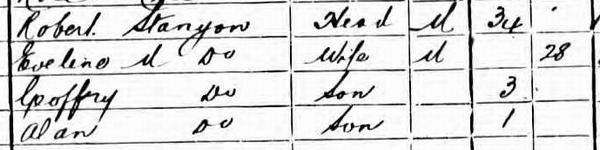 Robert Stanyon Head M 34
Eveline M Do Wife M 28
Goffry Do Son 3
Alan Do Son 1